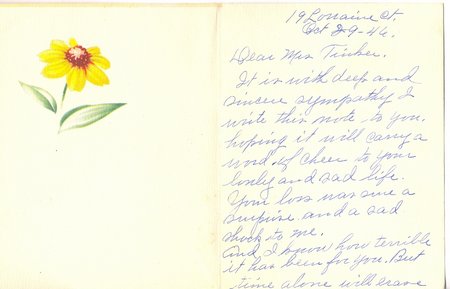 19 Lorraine Ct.
Oct 29-46.
Dear Mrs Tinker.
It is with deep and
sincere sympathy I
write this note to you,
hoping it will carry a
word of cheer to your
lonely and sad life.
Your loss was sure a
surprise and a sad
shock to me.
And I know how terrible
it has been for you. But
time alone will erase